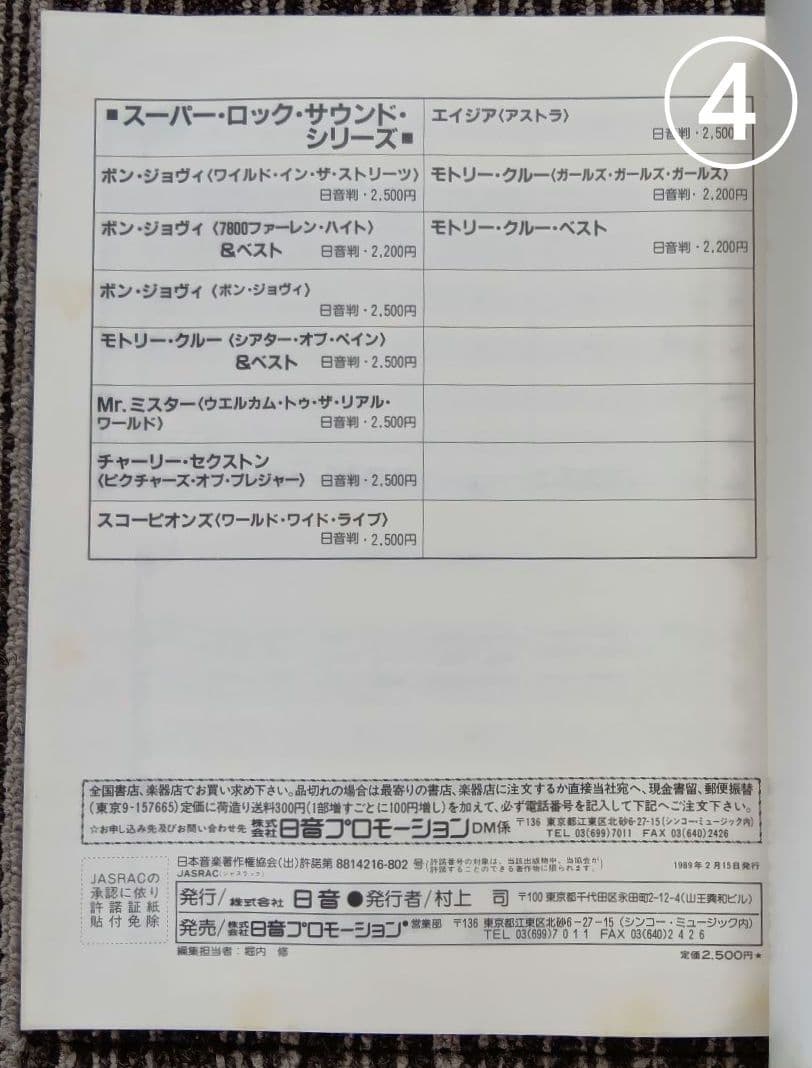 4
■スーパー・ロック・サウンド・
シリーズ■
ボン・ジョヴィ〈ワイルド・イン・ザ・ストリーツ〉
日音判・2,500円
ボン・ジョヴィ〈7800ファーレン・ハイト〉
&ベスト 日音判・2,200円
ボン・ジョヴィ〈ボン・ジョヴィ〉
日音判・2,500円
モトリー・クルー〈シアター・オブ・ペイン〉
&ベスト 日音判・2,500円
Mr.ミスター〈ウエルカム・トゥ・ザ・リアル・
ワールド〉 日音判・2,500円
チャーリー・セクストン
〈ピクチャーズ・オブ・プレジャー〉 日音判・2,500円
スコーピオンズ〈ワールド・ワイド・ライブ〉
日音判・2,500円
エイジア〈アストラ〉
日音判・2,500円
モトリー・クルー〈ガールズ・ガールズ・ガールズ〉
日音判・2,200円
モトリー・クルー・ベスト
日音判・2,200円
全国書店、楽器店でお買い求め下さい。品切れの場合は最寄りの書店、楽器店に注文するか直接当社宛へ、現金書留、郵便振替
(東京9-157665)定価に荷造り送料300円(1部増すごとに100円増し)を加えて、必ず電話番号を記入して下記へご注文下さい。
☆お申し込み先及びお問い合わせ先 株式会社日音プロモーションDM係 〒136 東京都江東区北砂6-27-15(シンコー・ミュージック内)
TEL 03(699)7011 FAX 03(640)2426
JASRACの
承認に依り
許諾証紙
貼付免除
日本音楽著作権協会(出)許諾第8814216-802号(許諾番号の対象は、当該出版物中、当協会が
許諾することのできる著作物に限られます。)
JASRAC(ジャスラック)
1989年2月15日発行
発行/株式会社 日音●発行者/村上 司 〒100 東京都千代田区永田町2-12-4(山王興和ビル)
発売/株式会社日音プロモーション・営業部 〒136 東京都江東区北砂6-27-15(シンコー・ミュージック内)
TEL 03(699)7011 FAX 03(640)2426
編集担当者:堀内 修
定価2,500円★